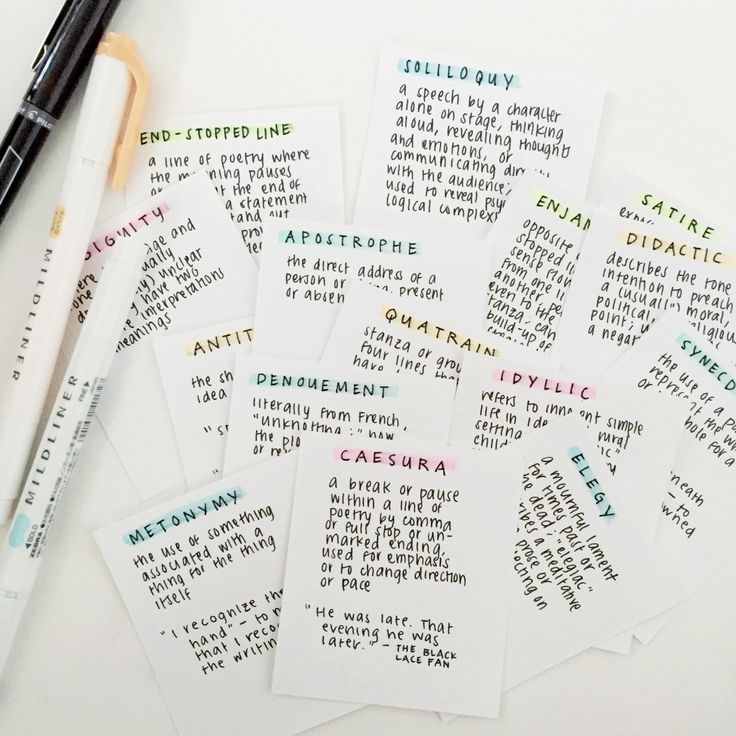 SOLILOQUY
a speech by a character
alone on stage, thinking
aloud, revealing thought
and emotions, or
communicating
with the audience;
used to reveal
logical
END-STOPPED LINE
a line of poetry where
the meaning pauses
at the end of
a statement
IGUITY
and
unclear
have two
interpretations
meanings
APOSTROPHE
the direct address of a
person or present
or absen
ENJAN
opposite
stopped
sense
from one
another
even to the
stanza. can
build-up of
SATIRE
DIDACTIC
describes the tone
intention to preach
a (usually) moral,
political,
point;
a negat
ANTIT
the
idea
QUATRAIN
stanza or grou
four lines
SYNECD
the use of a
represent the
hole for a
neath
– to
owned
DENOUEMENT
literally from French,
"unknotting;" how
the plo
IDYLLIC
refers to innocent simple
life in rural
setting
child
CAESURA
a break or pause
within a line of
poetry by comma
or full stop or un-
marked ending.
used for emphasis
or to change direction
or pace
"He was late. That
evening he was
later." – THE BLACK
LACE FAN
ELEGY
a mournful lament
for times past or
dead; "elegiac"
a meditative
prose or
ecting on
METONYMY
the use of something
associated with a
thing for the thing
itself
"I recognize the
hand" – to
that I reco
the writin
PILOT
MILDLINER
MILDLINER
FINE
BOLD
ZEBRA